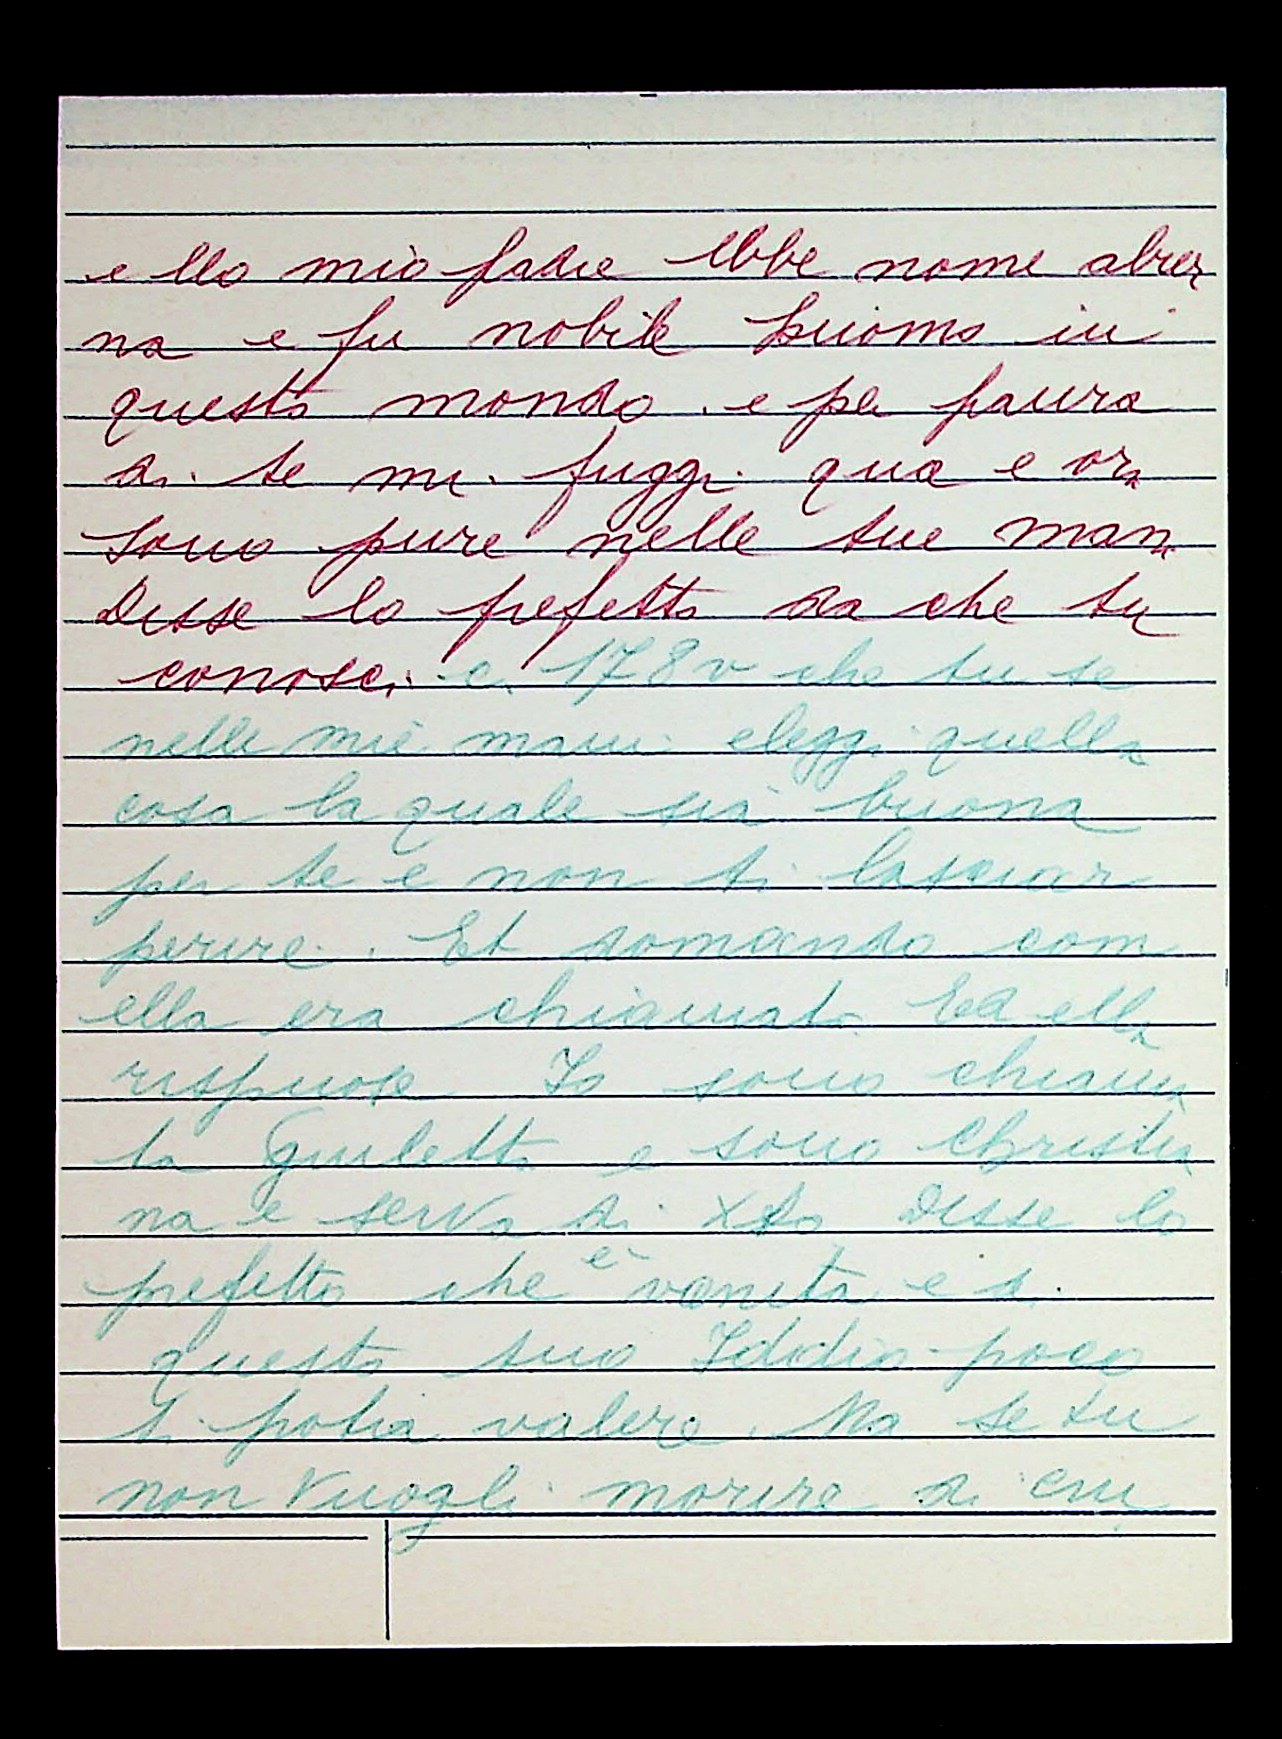 e llo mio padre ebbe nome abrez
na e fu nobile huomo in
questo mondo. e per paura
di te mi fuggi qua e ora
sono pure nelle tue mani
Disse lo prefetto da che tu
conosci c. 178v che tu se
nelle mie mani eleggi quella
cosa la quale sia buona
per te e non ti lasciare
perire. Et domando com
ella era chiamata Ed ella
rispuose Io sono chiama
ta Giuletta e sono Christia
na e serva di Xsto Disse lo
prefetto che è vanita e di
questo tuo Iddio poco
ti potra valere. Ma se tu
non vuogli morire di cru